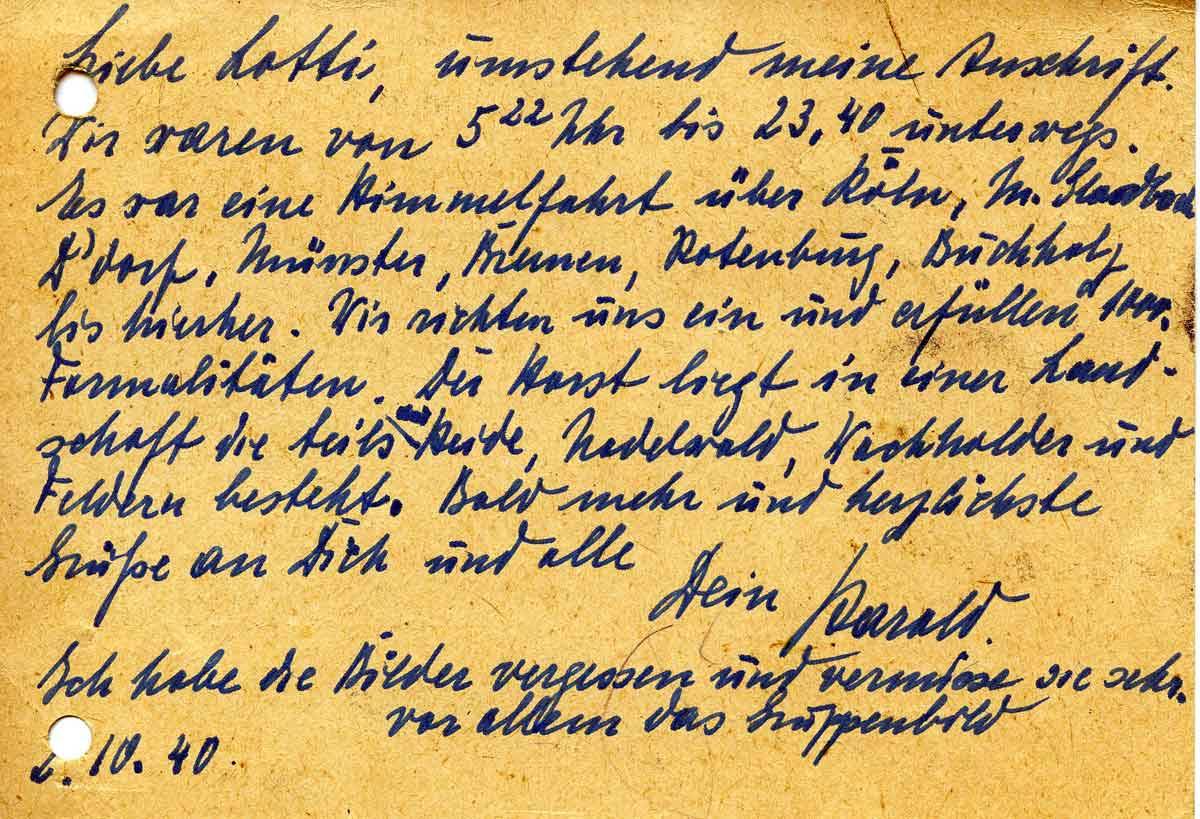 Liebe Lotti, umstehend meine Anschrift.
Wir waren von 5²² Uhr bis 23,40 unterwegs.
Es war eine Himmelfahrt über Köln, M. Gladbach
D'dorf, Münster, Bremen, Rotenburg, Buchholz
bis hierher. Wir richten uns ein und erfüllen
Formalitäten. Der Horst liegt in einer Land-
schaft die teils Heide, Nadelwald, Wachholder und
Feldern besteht. Bald mehr und herzlichste
Grüße an Dich und alle
Dein Harald.
Ich habe die Bilder vergessen und vermisse sie sehr.
vor allem das Gruppenbild
2.10.40.